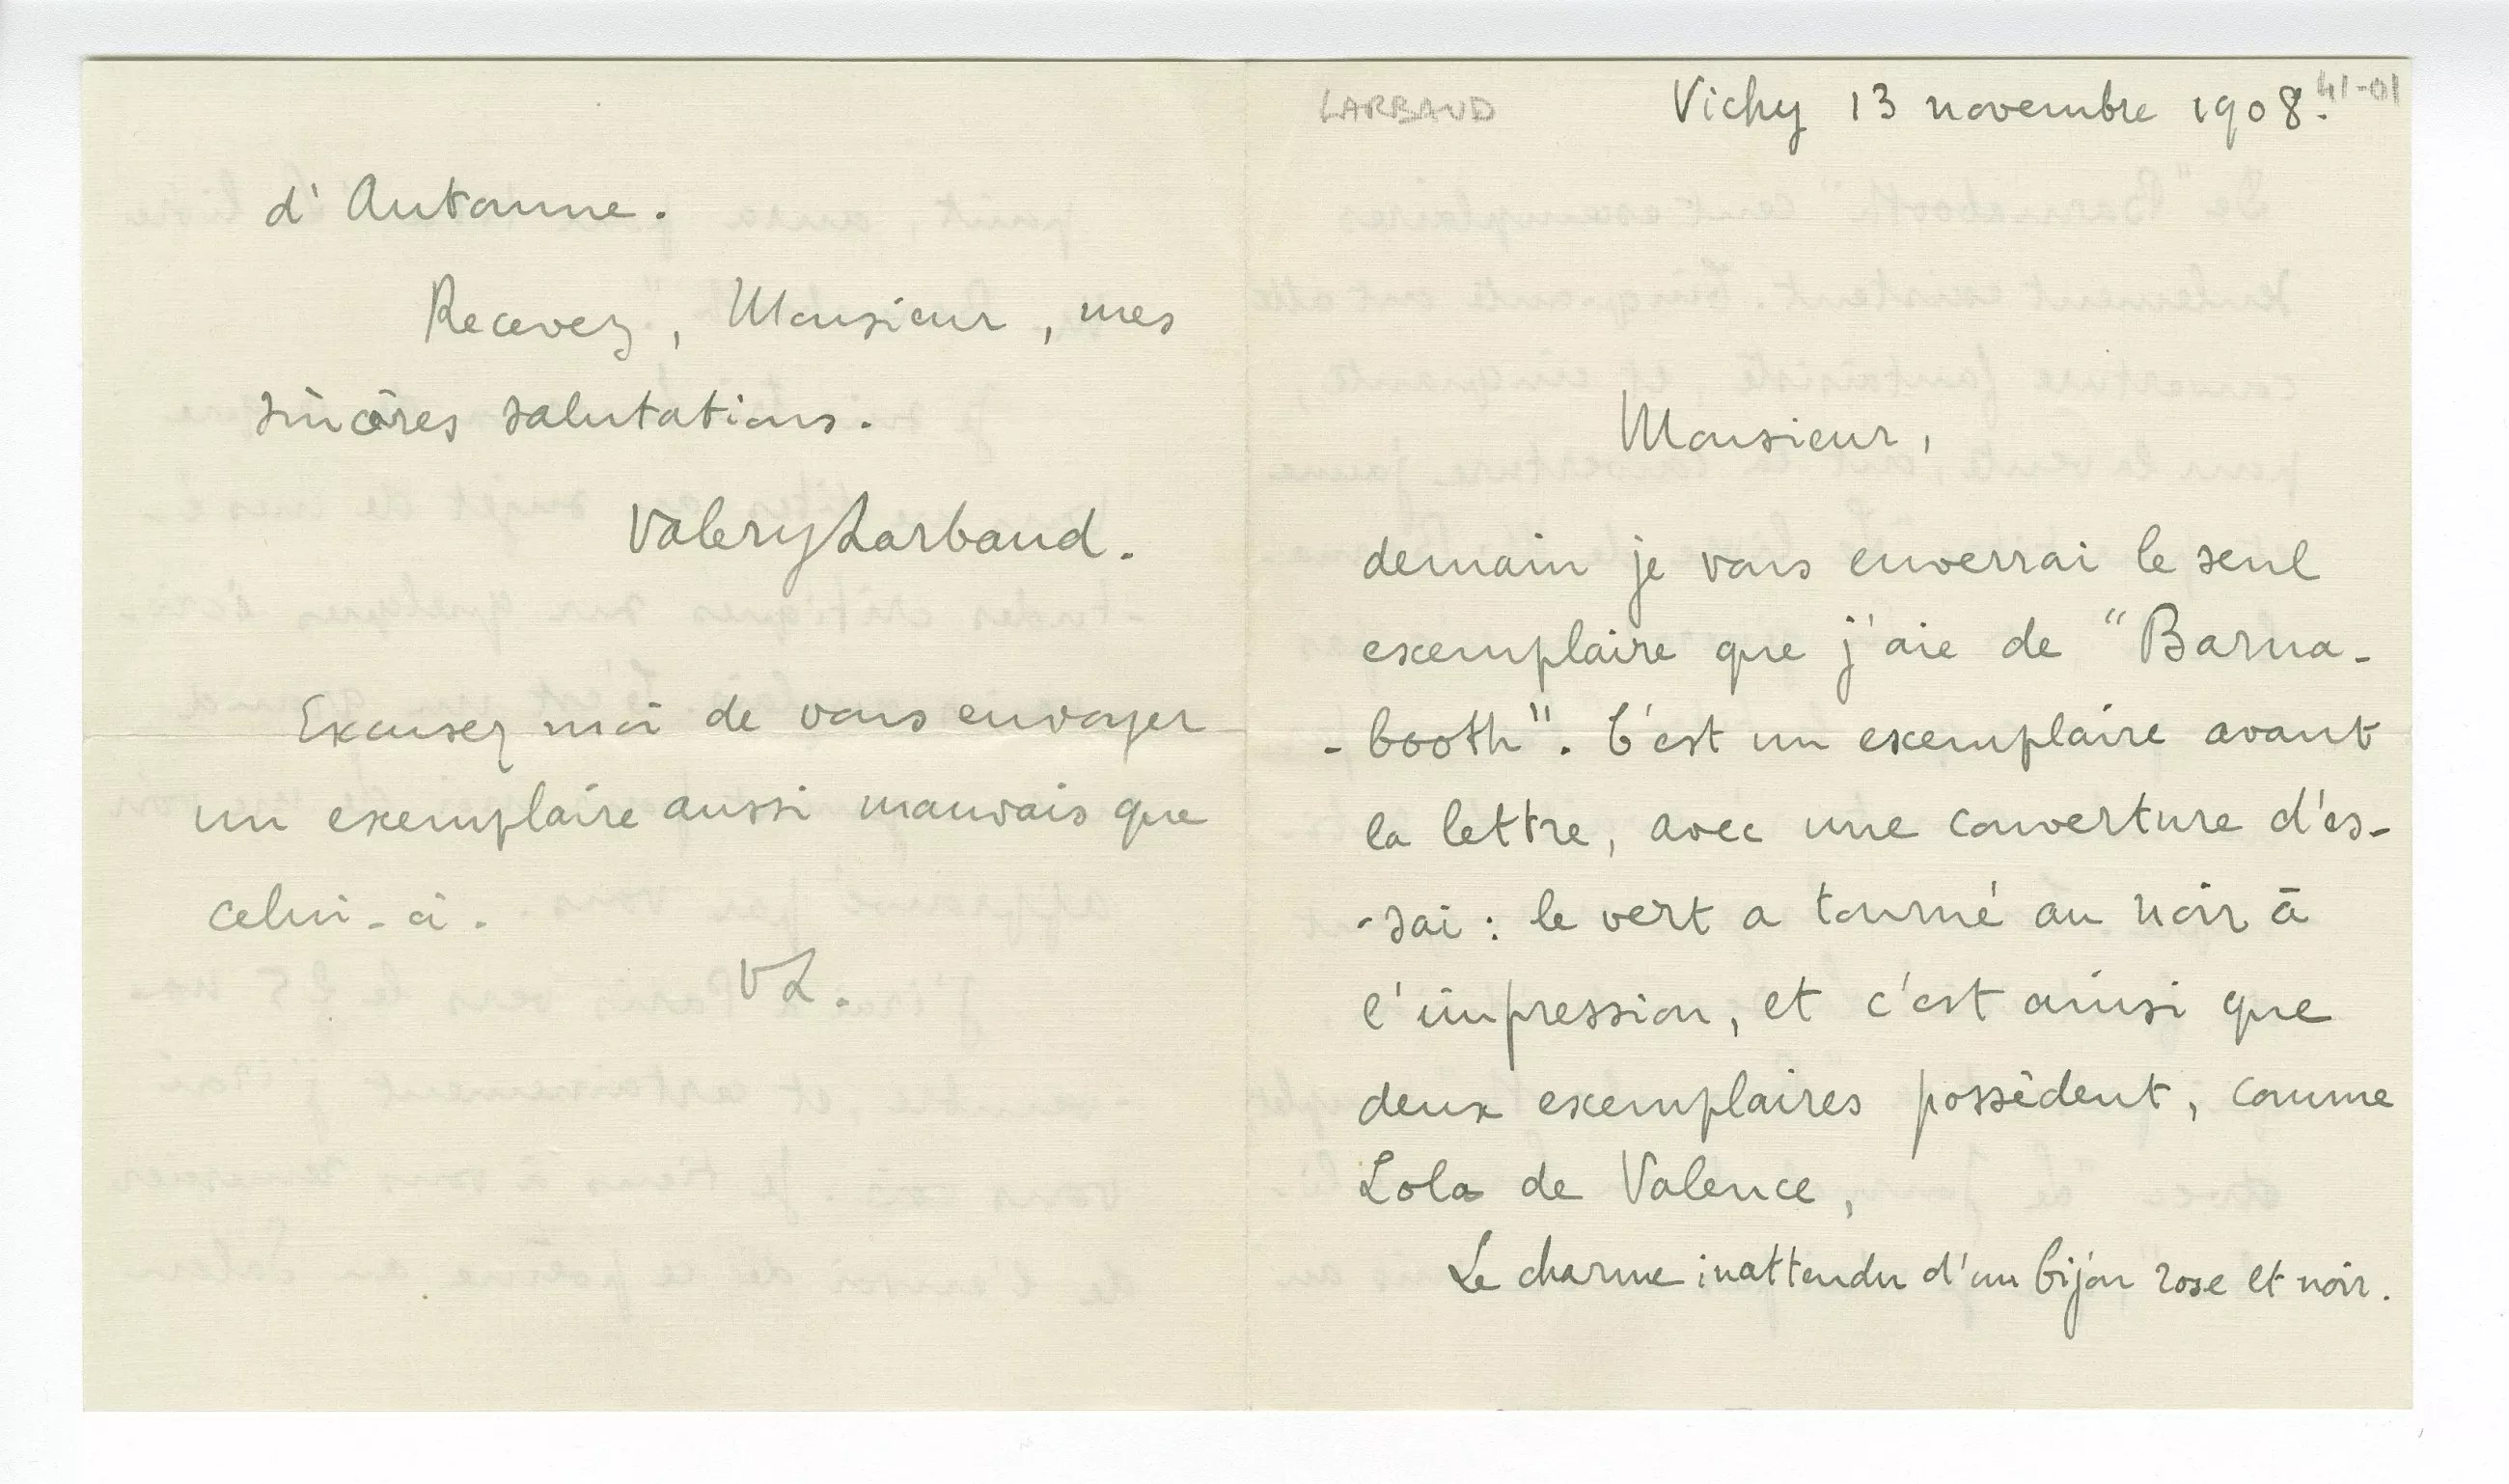 LARBAUD
41-01
Vichy 13 novembre 1908.
Monsieur,
demain je vous enverrai le seul
exemplaire que j'aie de "Barna-
-booth". C'est un exemplaire avant
la lettre, avec une couverture d'es-
-sai : le vert a tourné au noir à
l'impression, et c'est ainsi que
deux exemplaires possèdent, comme
Lola de Valence,
Le charme inattendu d'un bijou rose et noir.
d'Automne.
Recevez, Monsieur, mes
sincères salutations.
Valery Larbaud.
Excusez moi de vous envoyer
un exemplaire aussi mauvais que
celui-ci.
VL.